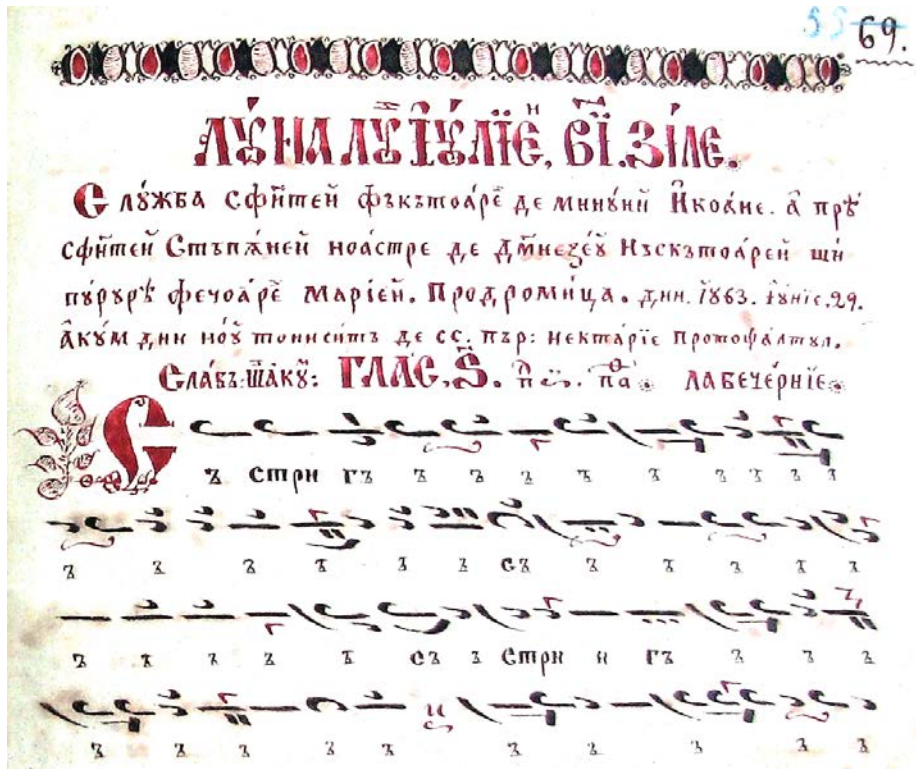 55 69.
ЛꙊНА ЛꙊ І҆Ꙋ́ЛЇЕ, В҃І. ЗІ́ЛЕ.
Слꙋ́жба Сфи́нтей фъкътоа́ре де минꙋ́нй И҆коа́не. а҆ прѣ
сфи́нтей Стъпѫ́ней ноа́стре де Дм҃незеꙋ́ Нъскътоа́рей ши
пꙋ́рꙋрѣ фечоа́ре Марі́ей. Продроми́ца. дин. 1863. І҆ꙋ́нїе. 29.
а҆кꙋ́м дин ноꙋ́ тониси́тъ де сс. пър: некта́рїе Протоѱа́лтꙋл.
Сла́въ: ші а҆кꙋ́м: ГЛАС, Ѕ҃. па ЛА ВЕЧЕ́РНЇЕ
Съ стри гъ ъ ъ ъ ъ ъ ъ ъ ъ ъ
ъ ъ ъ ъ ъ ъ съ ъ ъ ъ ъ ъ
ъ ъ ъ ъ ъ съ ъ Стри и гъ ъ ъ ъ
ъ ъ ъ ъ ъ ъ ъ ъ ъ ъ